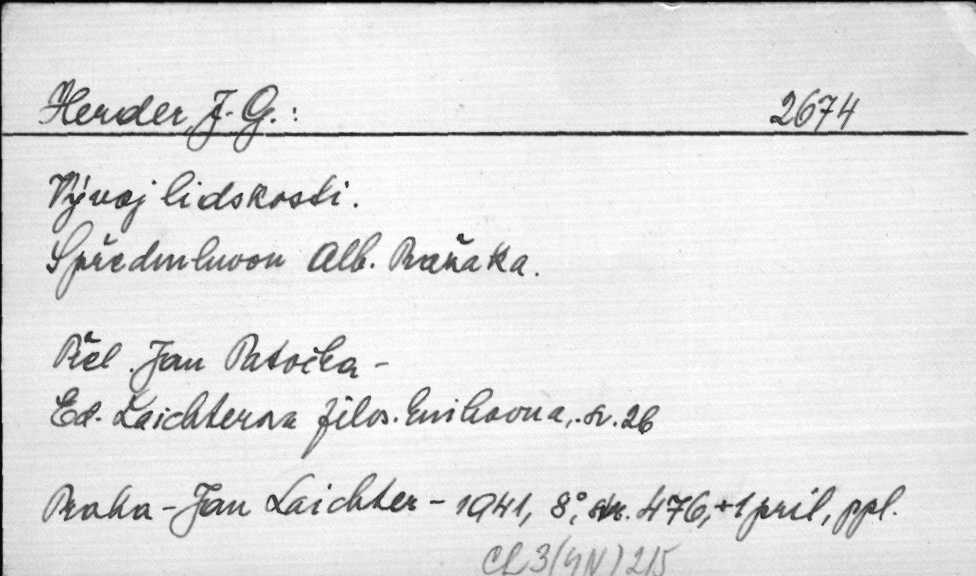 Herder, J. G.: 2674
Vývoj lidskosti.
S předmluvou Alb. Pražáka.
Přel. Jan Patočka -
Ed. Laichterova filos. knihovna, sv. 26
Praha - Jan Laichter - 1941, 8°, str. 476, +1 příl, ppl.